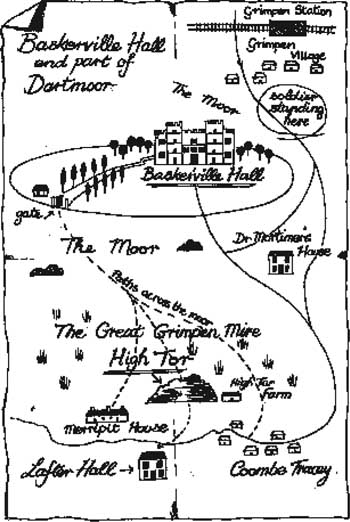 Grimpen Station
Baskerville Hall
and part of
Dartmoor
Grimpen
Village
The Moor
soldier
standing
here
Baskerville Hall
gate
Dr Mortimer's
House
The Moor
Paths across the moor
The Great Grimpen Mire
High Tor
High Tor
Farm
Merripit House
Lafter Hall →
Coombe Tracey